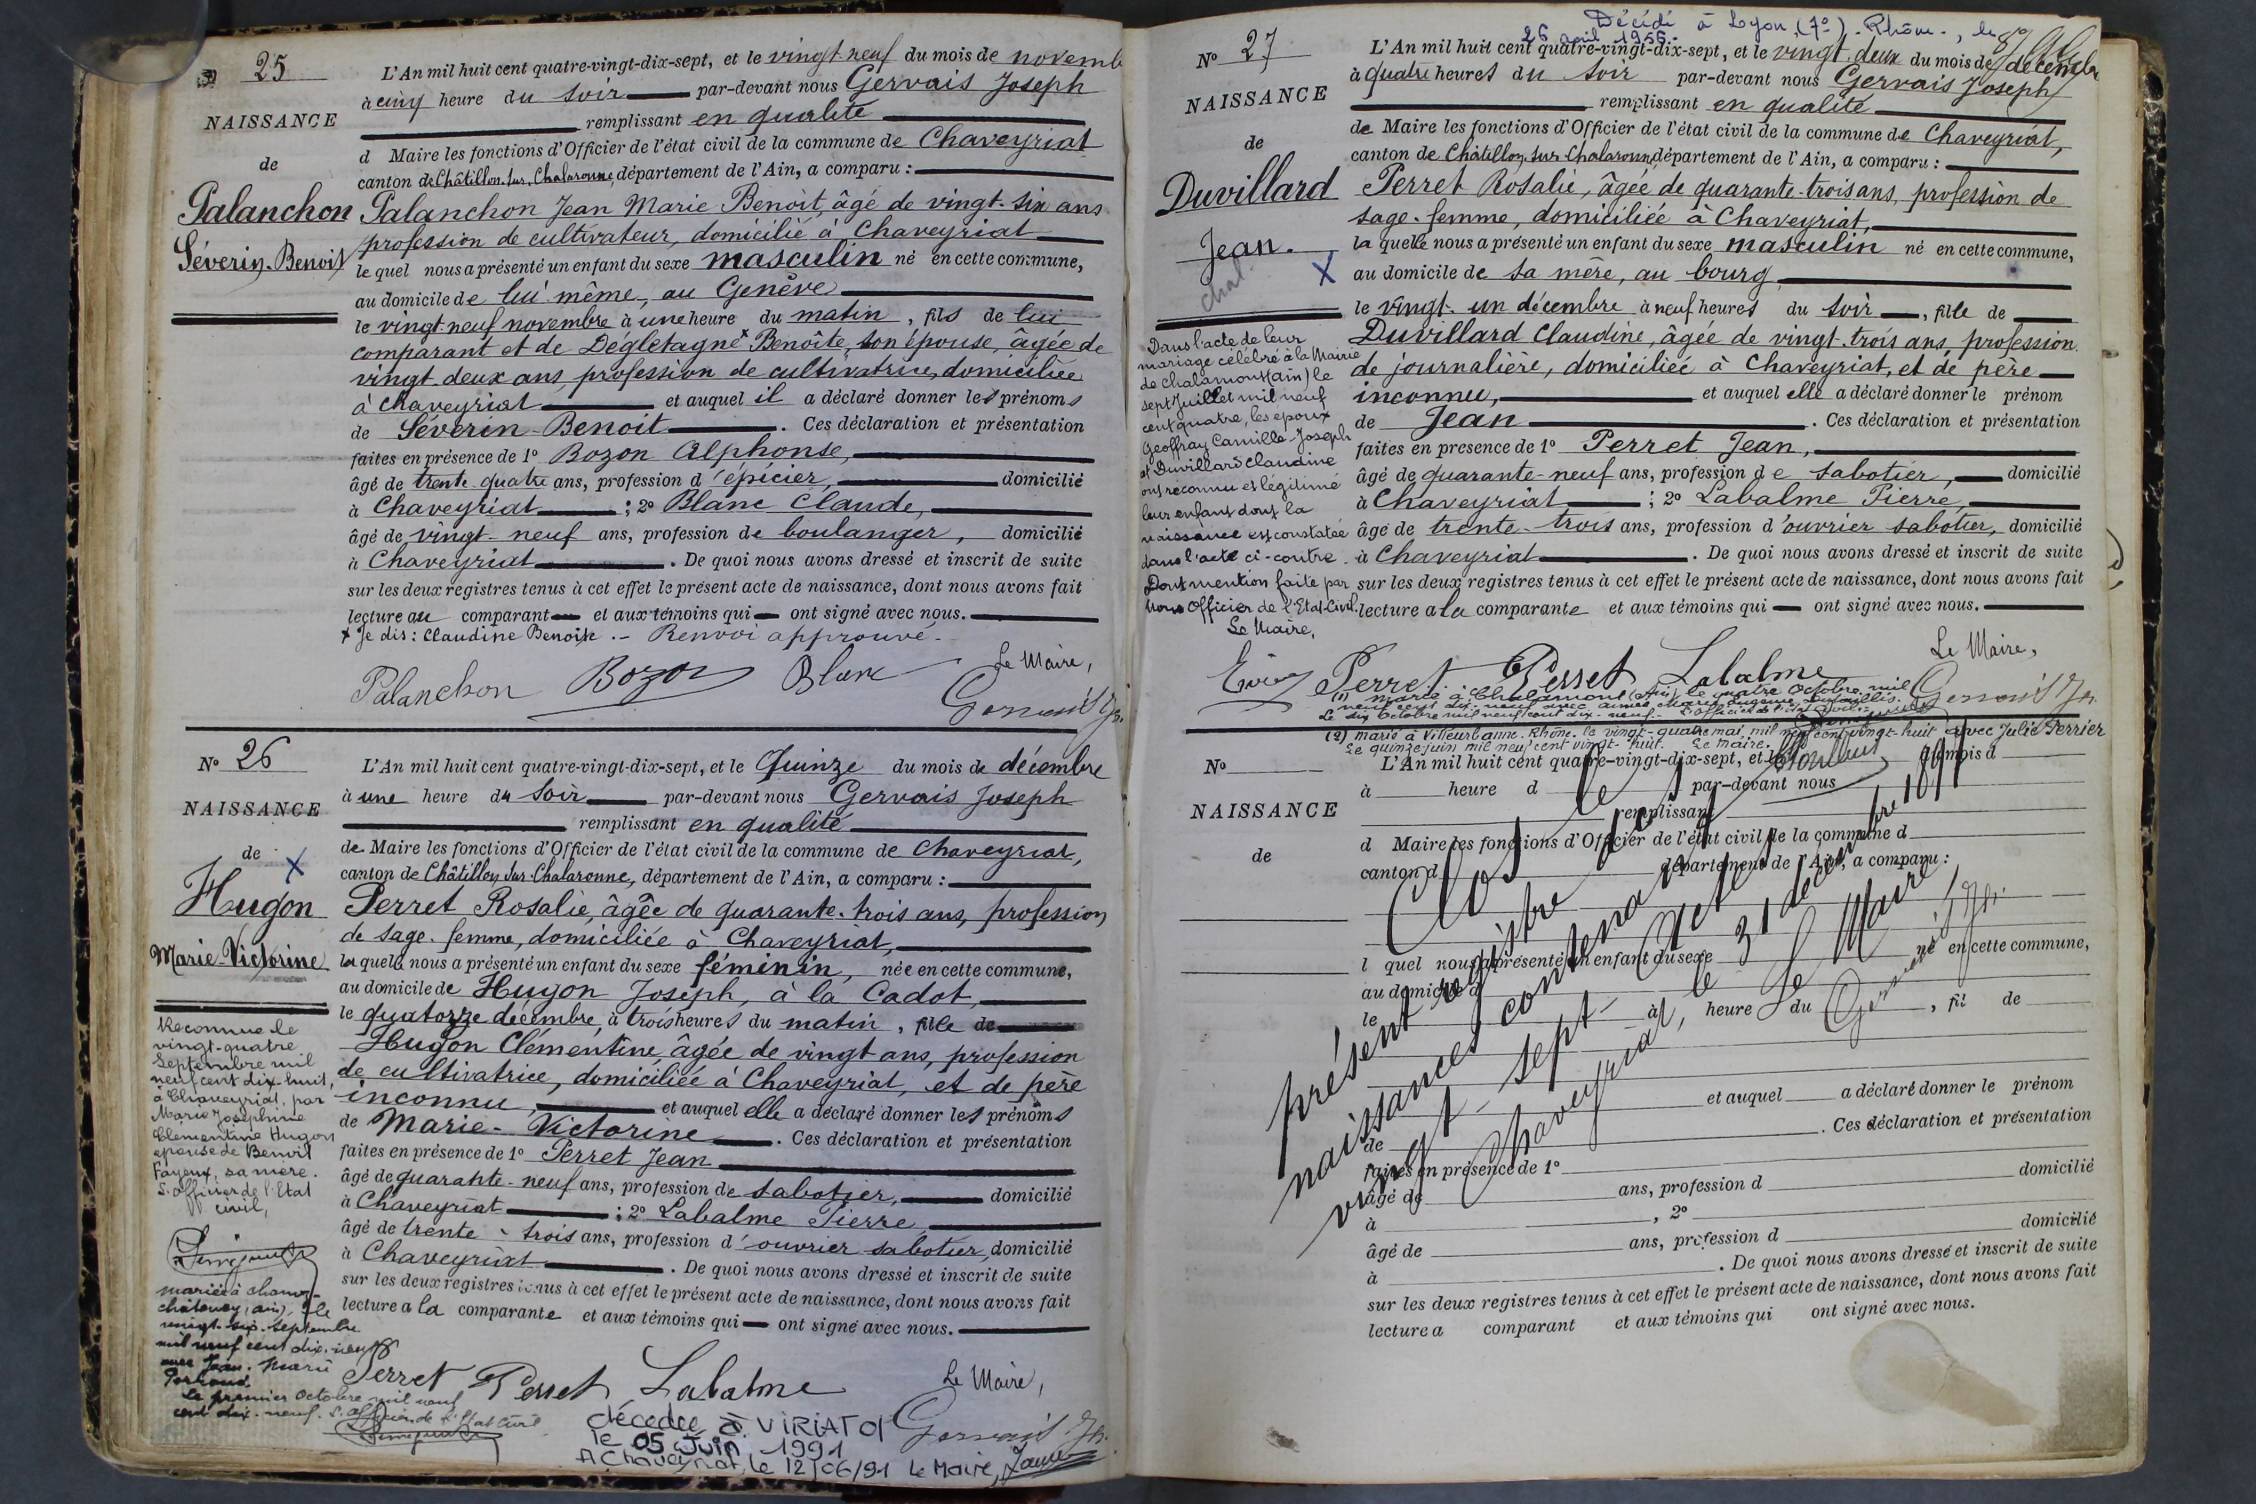 No 25
NAISSANCE
de
Palanchon
Séverin-Benoit
L'An mil huit cent quatre-vingt-dix-sept, et le vingt neuf du mois de novemb
à cinq heure du soir par-devant nous Gervais Joseph
remplissant en qualité
d Maire les fonctions d'Officier de l'état civil de la commune de Chaveyriat
canton de Châtillon-sur-Chalaronne, département de l'Ain, a comparu :
Palanchon Jean Marie Benoit, âgé de vingt-six ans
profession de cultivateur, domicilié à Chaveyriat
le quel nous a présenté un enfant du sexe masculin né en cette commune,
au domicile de lui même, au Genève
le vingt-neuf novembre à une heure du matin, fils de lui
comparant et de Déglétagne x Benoîte, son épouse, âgée de
vingt deux ans, profession de cultivatrice, domiciliée
à Chaveyriat et auquel il a déclaré donner les prénoms
de Séverin-Benoit. Ces déclaration et présentation
faites en présence de 1º Bozon Alphonse,
âgé de trente quatre ans, profession d'épicier, domicilié
à Chaveyriat ; 2º Blanc Claude,
âgé de vingt-neuf ans, profession de boulanger, domicilié
à Chaveyriat. De quoi nous avons dressé et inscrit de suite
sur les deux registres tenus à cet effet le présent acte de naissance, dont nous avons fait
lecture au comparant et aux témoins qui ont signé avec nous.
x Je dis : Claudine Benoite. - Renvoi approuvé.
Le Maire,
Palanchon Bozon Blanc Gervais Jh.
No 26
NAISSANCE
de
X
Hugon
Marie-Victorine
L'An mil huit cent quatre-vingt-dix-sept, et le Quinze du mois de décembre
à une heure du soir par-devant nous Gervais Joseph
remplissant en qualité
de Maire les fonctions d'Officier de l'état civil de la commune de Chaveyriat,
canton de Châtillon-sur-Chalaronne, département de l'Ain, a comparu :
Perret Rosalie, âgée de quarante-trois ans, profession
de sage-femme, domiciliée à Chaveyriat,
la quelle nous a présenté un enfant du sexe féminin, née en cette commune,
au domicile de Hugon Joseph, à la Cadot,
le quatorze décembre, à trois heures du matin, fille de
Hugon Clémentine, âgée de vingt ans, profession
de cultivatrice, domiciliée à Chaveyriat, et de père
inconnu, et auquel elle a déclaré donner les prénoms
de Marie-Victorine. Ces déclaration et présentation
faites en présence de 1º Perret Jean
âgé de quarante-neuf ans, profession de sabotier, domicilié
à Chaveyriat ; 2º Labalme Pierre
âgé de trente-trois ans, profession d'ouvrier sabotier, domicilié
à Chaveyriat. De quoi nous avons dressé et inscrit de suite
sur les deux registres tenus à cet effet le présent acte de naissance, dont nous avons fait
lecture a la comparante et aux témoins qui ont signé avec nous.
Reconnue le
vingt-quatre
Septembre mil
neuf cent dix-huit,
à Chaveyriat, par
Marie Joséphine
Clémentine Hugon
épouse de Benoit
Fayeux, sa mère.
L'officier de l'Etat
civil,
mariée à
châtenay (ain), le
vingt-six-septembre
mil neuf cent dix-neuf
avec Jean-Marie
Perraud.
Le premier Octobre mil neuf
cent dix-neuf. L'Officier de l'Etat Civil
Le Maire,
Perret Perret Labalme Gervais Jh.
décédée à VIRIAT 01
le 05 Juin 1991
A Chaveyriat, le 12/06/91 Le Maire,
No 27
NAISSANCE
de
Duvillard
Jean.
X
Décédé à Lyon (7e) - Rhône -, le
26 avril 1955.
L'An mil huit cent quatre-vingt-dix-sept, et le vingt-deux du mois de décembr
à quatre heures du soir par-devant nous Gervais Joseph
remplissant en qualité
de Maire les fonctions d'Officier de l'état civil de la commune de Chaveyriat,
canton de Châtillon-sur-Chalaronne, département de l'Ain, a comparu :
Perret Rosalie, âgée de quarante-trois ans, profession de
sage-femme, domiciliée à Chaveyriat,
la quelle nous a présenté un enfant du sexe masculin né en cette commune,
au domicile de sa mère, au bourg,
le vingt-un décembre à neuf heures du soir, fille de
Duvillard Claudine, âgée de vingt-trois ans, profession
de journalière, domiciliée à Chaveyriat, et de père
inconnu, et auquel elle a déclaré donner le prénom
de Jean. Ces déclaration et présentation
faites en présence de 1º Perret Jean,
âgé de quarante-neuf ans, profession de sabotier, domicilié
à Chaveyriat ; 2º Labalme Pierre,
âgé de trente-trois ans, profession d'ouvrier sabotier, domicilié
à Chaveyriat. De quoi nous avons dressé et inscrit de suite
sur les deux registres tenus à cet effet le présent acte de naissance, dont nous avons fait
lecture a la comparante et aux témoins qui ont signé avec nous.
Dans l'acte de leur
mariage célébré à la Mairie
de chalamont (ain) le
sept Juillet mil neuf
cent quatre, les époux
Geoffray Camille Joseph
et Duvillard Claudine
ont reconnu et légitimé
leur enfant dont la
naissance est constatée
dans l'acte ci-contre.
Dont mention faite par
nous Officier de l'Etat-Civil.
Le Maire,
Le Maire,
Perret Perret Labalme Gervais Jh.
(1) Marié à Chalamont (Ain) le quatre Octobre mil
neuf cent dix-neuf avec
Le six Octobre mil neuf cent dix-neuf. L'Officier de l'Etat Civil.
(2) marié à Villeurbanne. Rhône. le vingt-quatre mai mil neuf cent vingt-huit avec Julie Perrier
Le quinze juin mil neuf cent vingt-huit. Le Maire.
No
NAISSANCE
de
L'An mil huit cent quatre-vingt-dix-sept, et le du mois d
à heure d par-devant nous
remplissant
d Maire les fonctions d'Officier de l'état civil de la commune d
canton d département de l'Ain, a comparu :
l quel nous a présenté un enfant du sexe né en cette commune,
au domicile d
le à heure du, fil de
et auquel a déclaré donner le prénom
de. Ces déclaration et présentation
faites en présence de 1º
âgé de ans, profession d domicilié
à, 2º
âgé de ans, profession d domicilié
à. De quoi nous avons dressé et inscrit de suite
sur les deux registres tenus à cet effet le présent acte de naissance, dont nous avons fait
lecture a comparant et aux témoins qui ont signé avec nous.
Clos le
présent registre de
naissances contenant
vingt-sept actes
Chaveyriat, le 31 décembre 1897
Le Maire,
Gervais Jh.